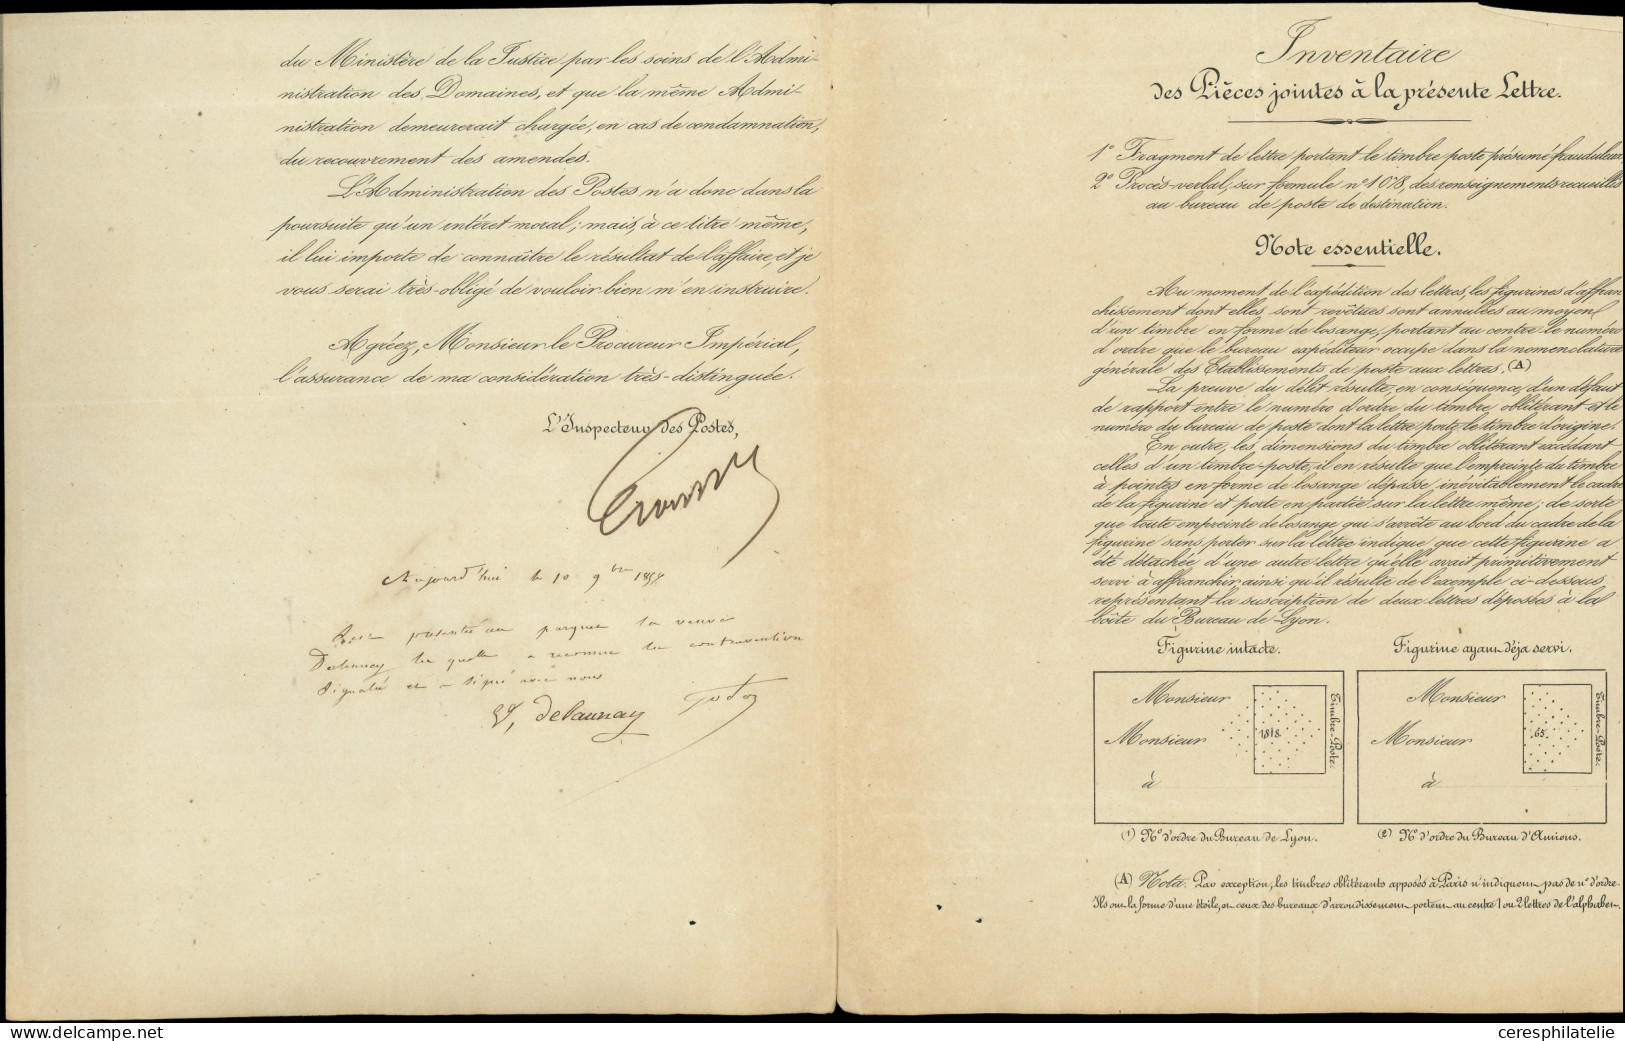 du Ministère de la Justice par les soins de l'Admi-
nistration des Domaines, et que la même Admi-
nistration demeurerait chargée, en cas de condamnation,
du recouvrement des amendes.
L'Administration des Postes n'a donc dans la
poursuite qu'un intéret moral; mais, à ce titre même,
il lui importe de connaître le résultat de l'affaire, et je
vous serai très-obligé de vouloir bien m'en instruire.
Agréez, Monsieur le Procureur Impérial,
l'assurance de ma considération très-distinguée.
L'Inspecteur des Postes,
Aujourd'hui le 10 9bre
présentée au parquet la veuve
Delaunay la quelle a reconnu la contravention
Signalée et a signé avec nous
Vve delaunay
Inventaire
des Pièces jointes à la présente Lettre.
1° Fragment de lettre portant le timbre poste présumé frauduleux
2° Procès-verbal, sur formule n° 1078, des renseignements recueillis
au bureau de poste de destination.
Note essentielle.
Au moment de l'expédition des lettres, les figurines d'affran
chissement dont elles sont revêtues sont annulées au moyen
d'un timbre en forme de losange, portant au centre le numéro
d'ordre que le bureau expéditeur occupe dans la nomenclature
générale des Etablissements de poste aux lettres. (A)
La preuve du délit résulte, en conséquence, d'un défaut
de rapport entre le numéro d'ordre du timbre oblitérant et le
numéro du bureau de poste dont la lettre porte le timbre d'origine.
En outre, les dimensions du timbre oblitérant excédant
celles d'un timbre-poste, il en résulte que l'empreinte du timbre
à pointes en forme de losange dépasse inévitablement le cadre
de la figurine et porte en partie sur la lettre même; de sorte
que toute empreinte de losange qui s'arrête au bord du cadre de la
figurine sans porter sur la lettre indique que cette figurine a
été détachée d'une autre lettre qu'elle avait primitivement
servi à affranchir, ainsi qu'il résulte de l'exemple ci-dessous,
représentant la suscription de deux lettres déposées à la
boîte du Bureau de Lyon.
Figurine intacte.
Figurine ayant déjà servi.
Monsieur
Monsieur
à
1818.
Timbre-Poste.
Monsieur
Monsieur
à
65.
Timbre-Poste.
(1) N° d'ordre du Bureau de Lyon.
(2) N° d'ordre du Bureau d'Amiens.
(A) Nota. Par exception, les timbres oblitérants apposés à Paris n'indiquent pas de n° d'ordre.
Ils ont la forme d'une étoile, et ceux des bureaux d'arrondissement portent au centre 1 ou 2 lettres de l'alphabet.
www.delcampe.net
ceresphilatelie